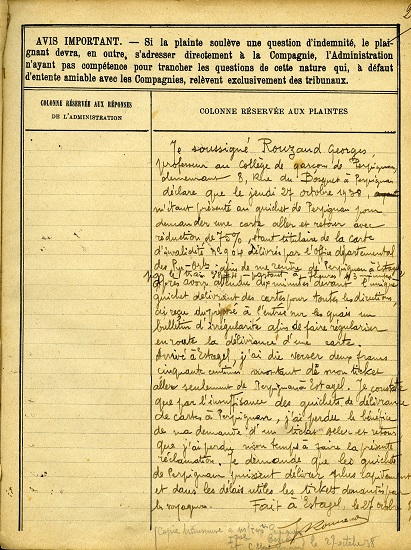 AVIS IMPORTANT. — Si la plainte soulève une question d'indemnité, le plai-
gnant devra, en outre, s'adresser directement à la Compagnie, l'Administration
n'ayant pas compétence pour trancher les questions de cette nature qui, à défaut
d'entente amiable avec les Compagnies, relèvent exclusivement des tribunaux.
COLONNE RÉSERVÉE AUX RÉPONSES
DE L'ADMINISTRATION
COLONNE RÉSERVÉE AUX PLAINTES
Je soussigné Rouzaud Georges,
professeur au Collège de garçons de Perpignan,
demeurant 8, Rue du Bosquet à Perpignan
déclare que le jeudi 27 octobre 1938,
m'étant présenté au guichet de Perpignan pour
demander une carte aller et retour avec
réduction de 75%, étant titulaire de la Carte
d'invalidité N° 904 délivrée par l'office départemental
des Pyr-Orles afin de me rendre de Perpignan à Estagel
par le train partant à heures 43 minutes
Après avoir attendu dix minutes devant l'unique
guichet délivrant des cartes pour toutes les directions,
à l'entrée sur les quais un
bulletin d'irrégularité afin de faire régulariser
en route la délivrance d'une carte.
Arrivé à Estagel, j'ai dû verser deux francs
cinquante centimes montant de mon ticket
aller seulement de Perpignan à Estagel. Je constate
que par l'insuffisance des guichets de délivrance
de carte à Perpignan, j'ai perdu le bénéfice
de ma demande d'un ticket aller et retour
que j'ai perdu mon temps à faire la présente
réclamation. Je demande que les guichets
de Perpignan puissent délivrer plus rapidement
et dans les délais utiles les tickets demandés par
les voyageurs. Fait à Estagel, le 27 octobre
Copie
le 27 octobre 38